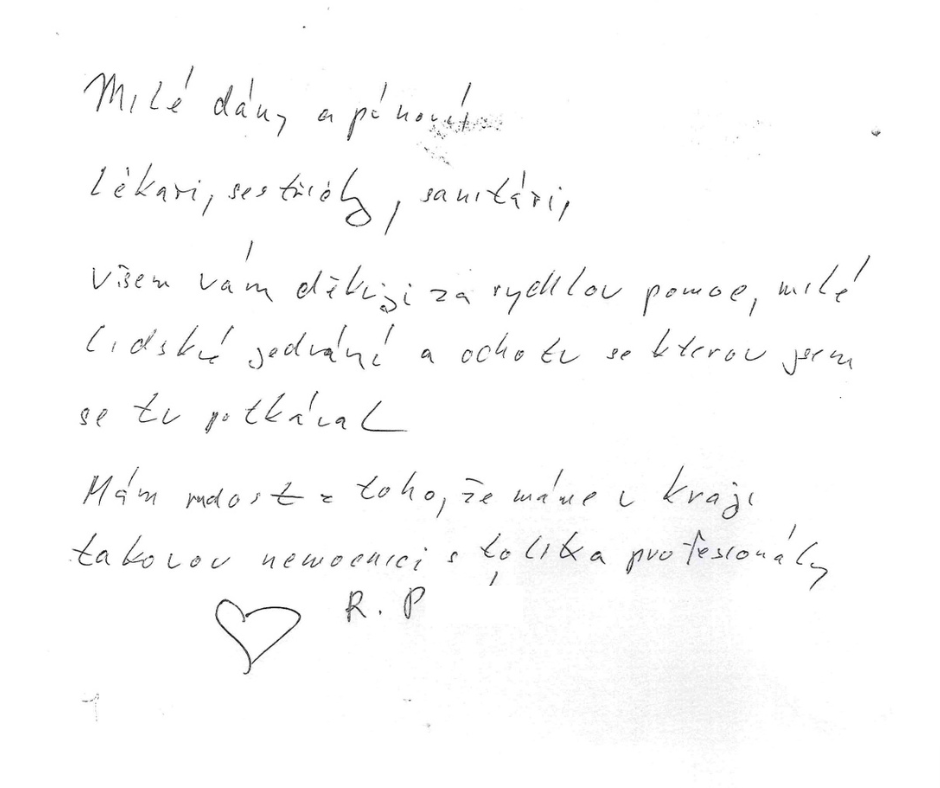 Milé dámy a pánové
lékari, sestřičky, sanitári,
všem vám děkuji za rychlou pomoc, milé
lidské jednání a ochotu se kterou jsem
se tu potkával
Mám radost z toho, že máme v kraji
takovou nemocnici s tolika profesionály
R. P